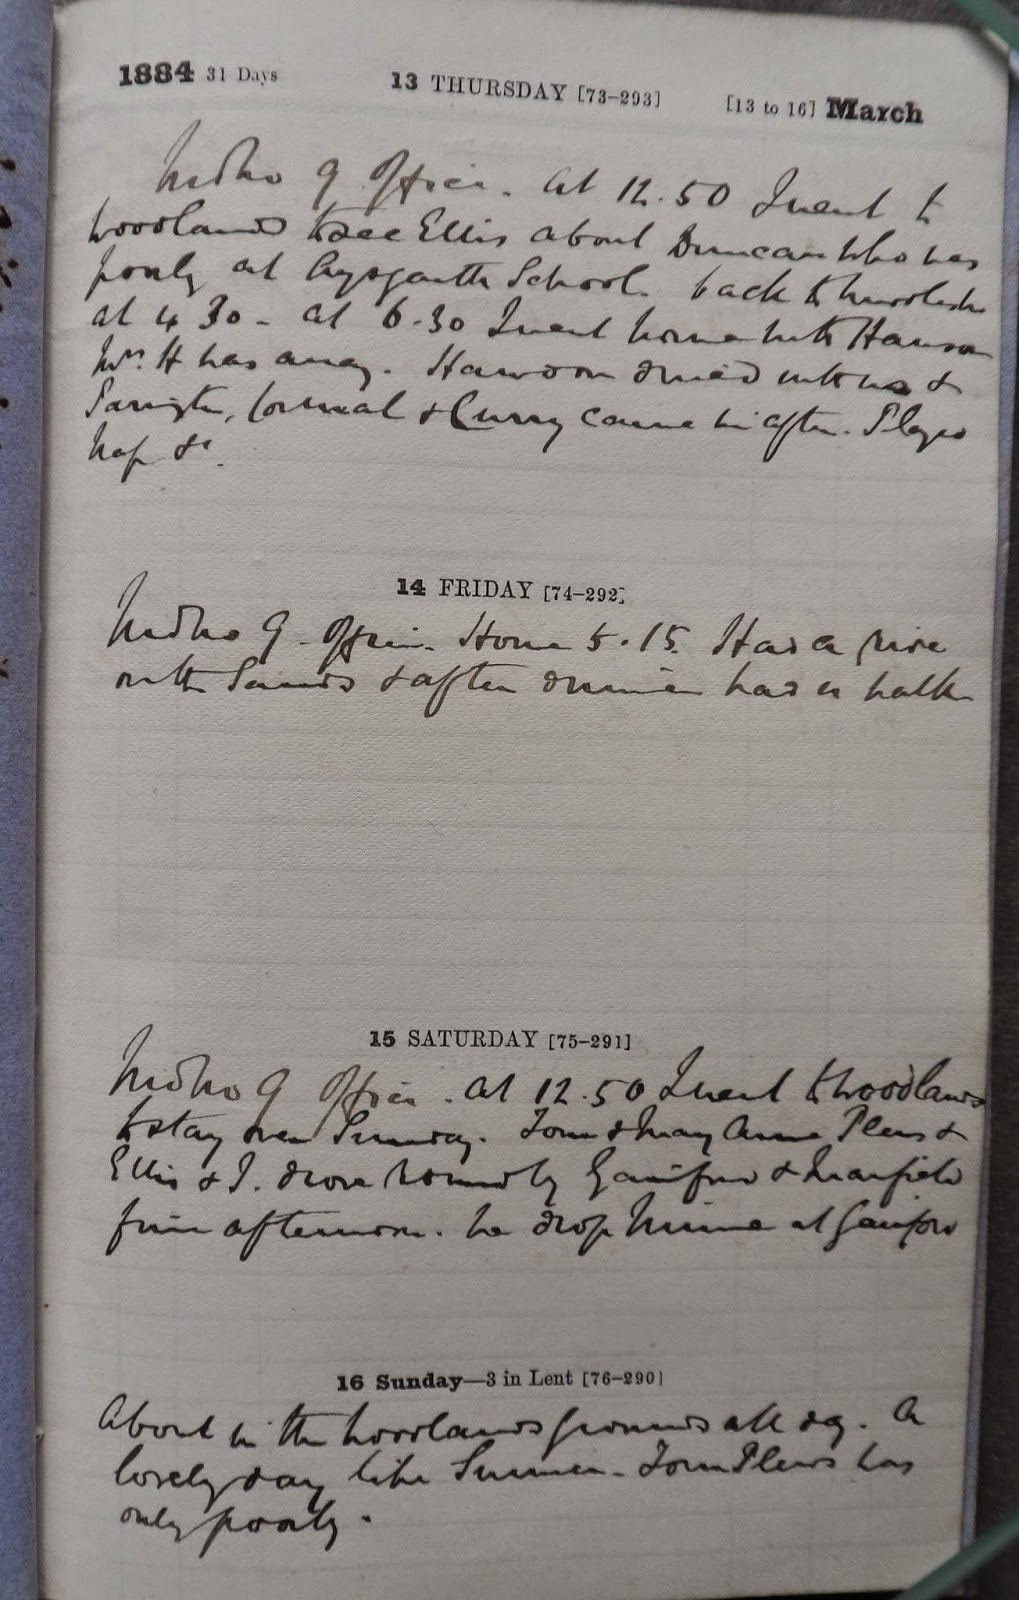 1884 31 Days 13 THURSDAY [73-293] [13 to 16] March
Mdbro 9 Office. At 12.50 I went to
Woodlands to see Ellis about Duncan who was
poorly at Aysgarth School. back to
at 4 30 - at 6.30 I went home with Hanson
Mrs H was away. Hanson dined with us &
& Curry came in after. Played
Nap &c.
14 FRIDAY [74-292]
Mdbro 9 Office. Home 5.15. Had a ride
on the Sands & after dinner had a walk
15 SATURDAY [75-291]
Mdbro 9 Office. At 12.50 I went to Woodlands
to stay over Sunday. Tom & Mary Anne Plews &
Ellis & I. drove round by Gainford & Manfield
fine afternoon. We drop Minnie at Gainford
16 Sunday—3 in Lent [76-290]
About in the Woodlands grounds all day. A
lovely day like Summer. Tom Plews was
only poorly.